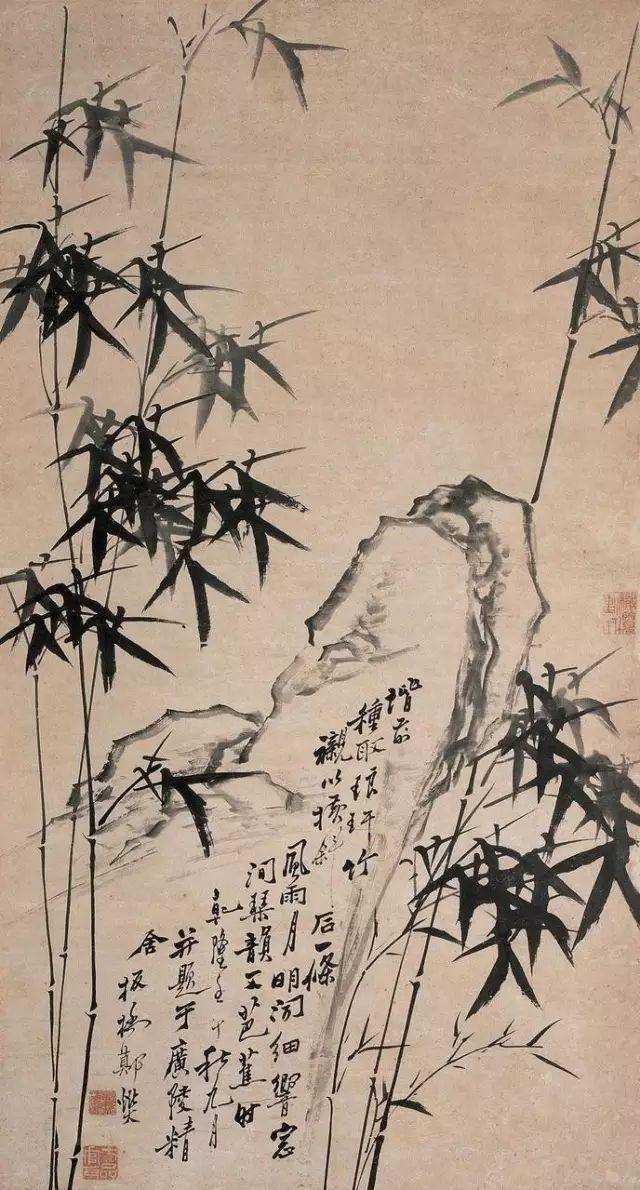 階前
種取琅玕竹
襯以横斜石一條
風雨月明聞細響窓
間琴韻又芭蕉时
乾隆壬午秋九月
并題于廣陵精
舍板橋鄭燮